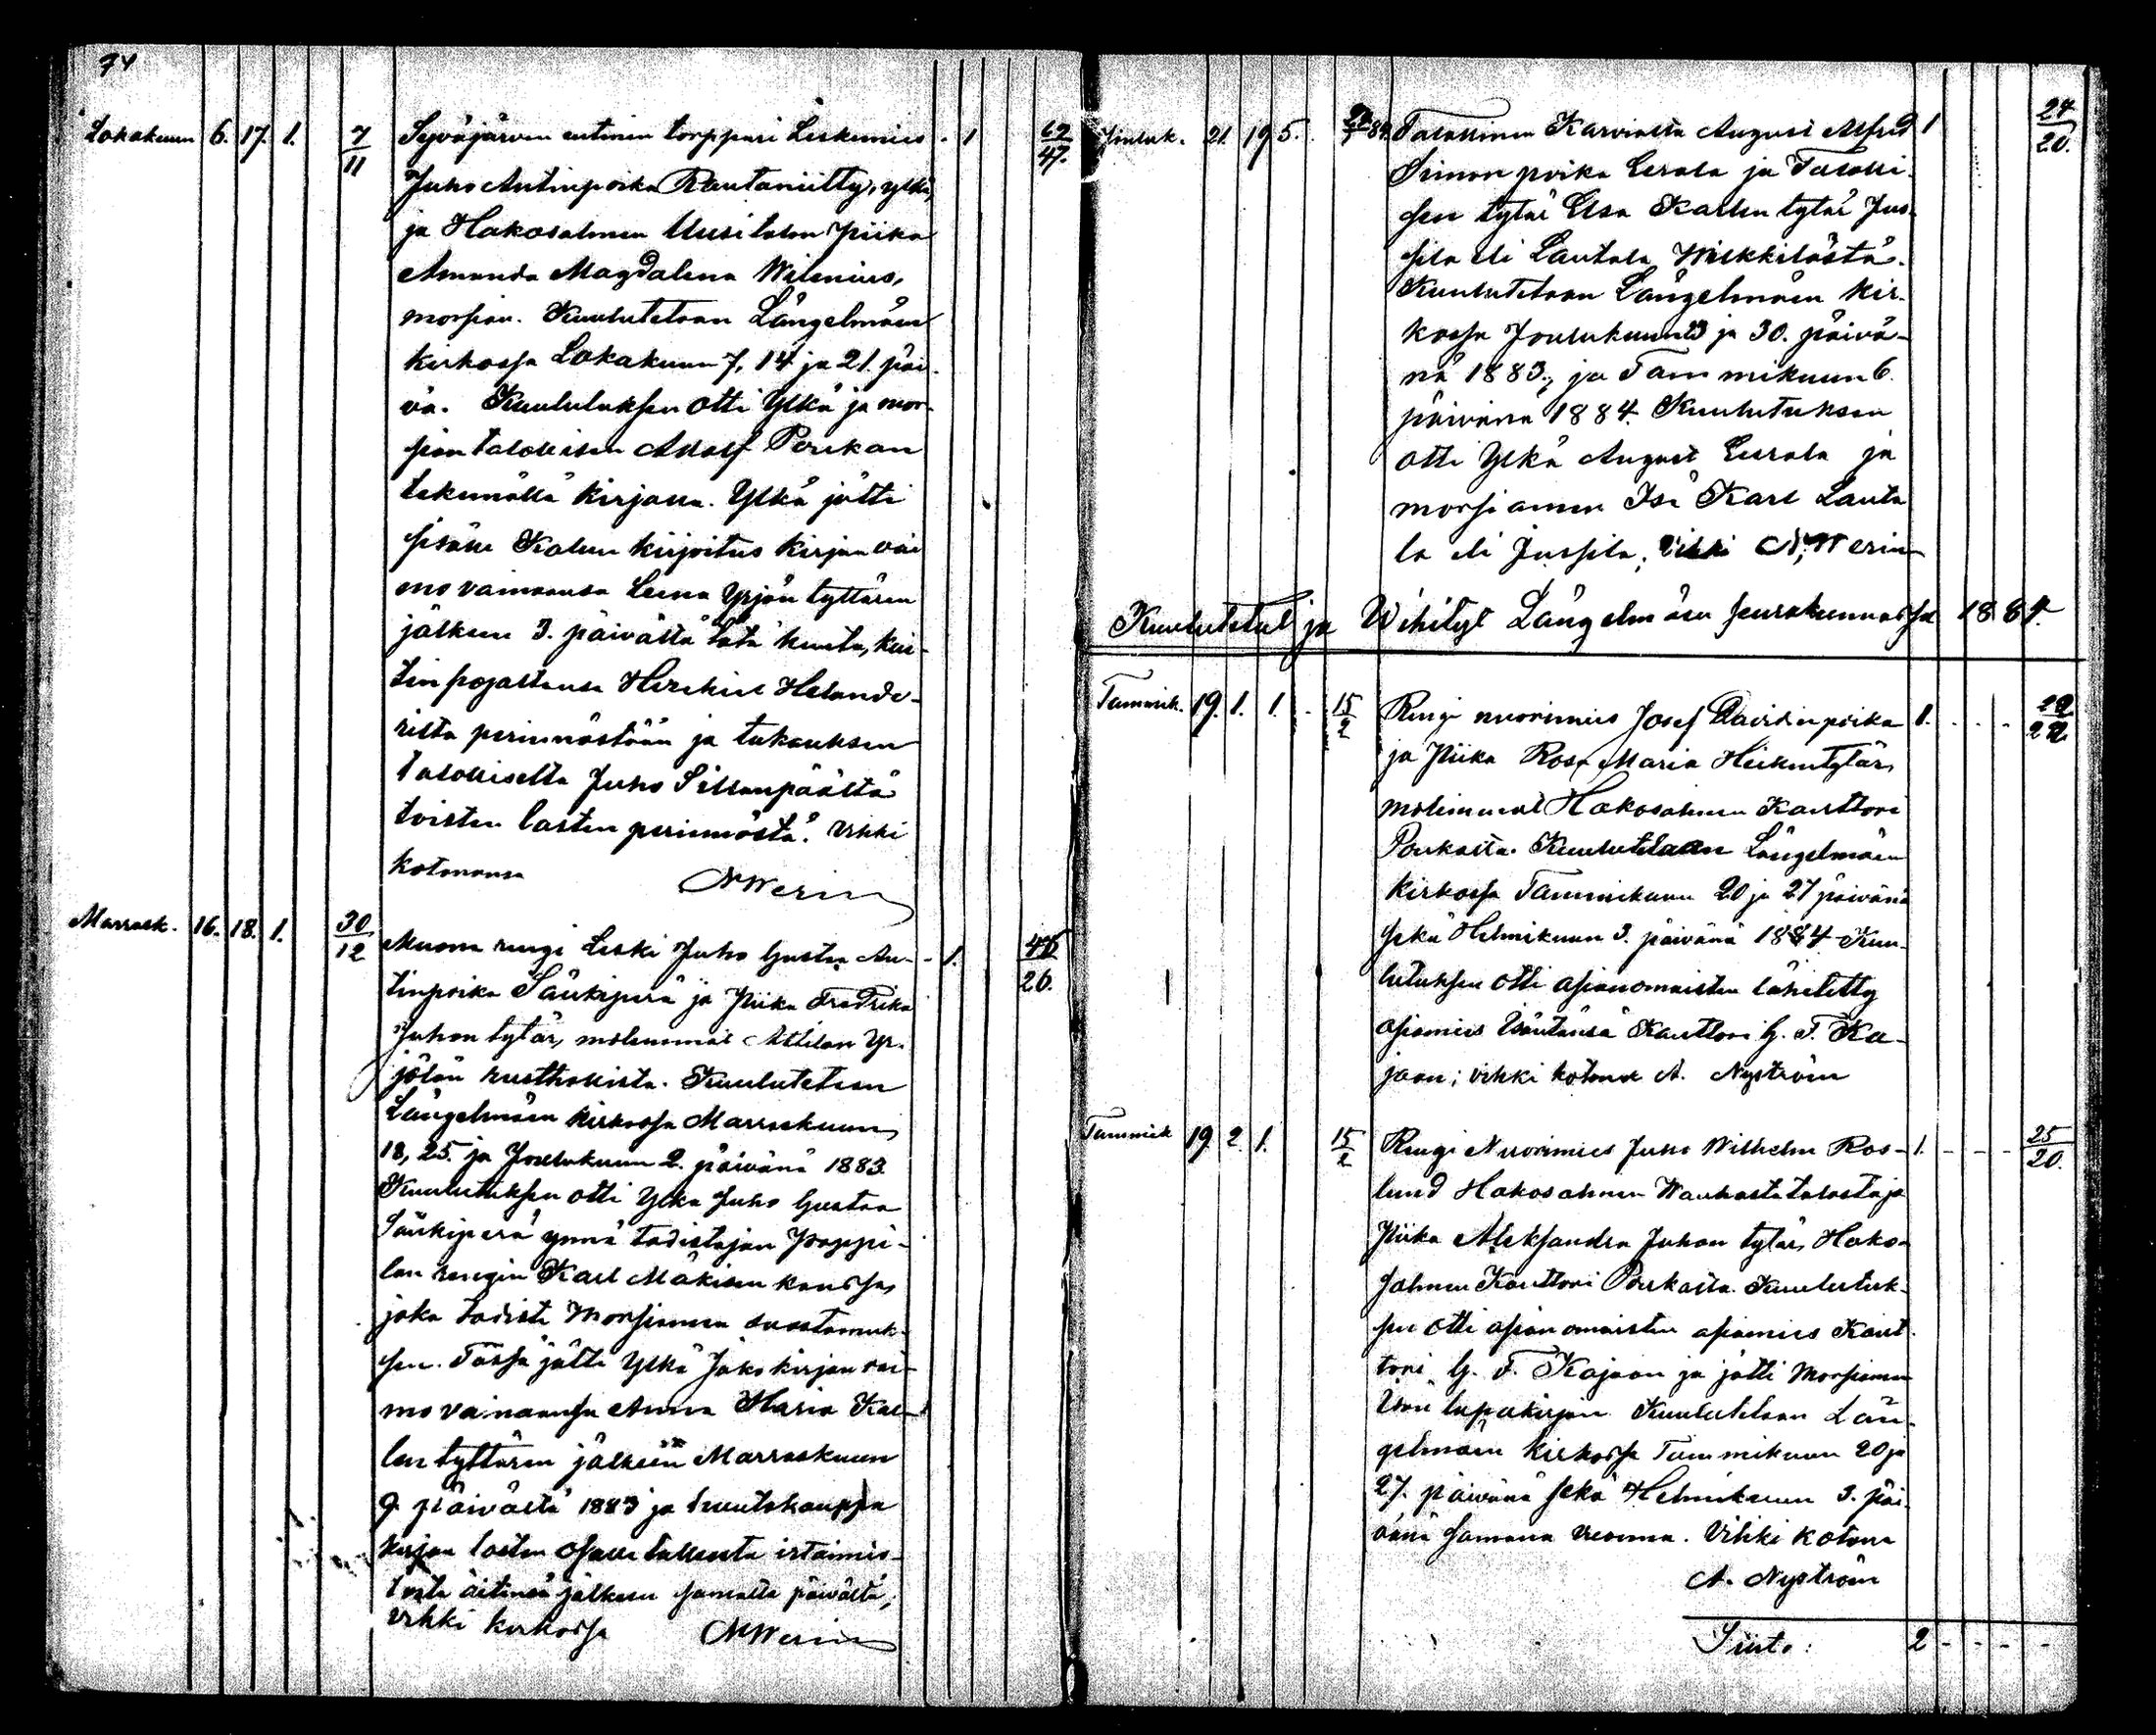 74
Lokakuun 6. 17. 1. 7/11 Syväjärven entinen torppari Leskimies - 1 62/47.
Juho Antinpoika Rautaniitty, ylkä,
ja Hakosalmen Uusitalon piika
Amanda Magdalena Wilenius,
morsian. Kuulutetaan Längelmäen
kirkossa Lokakuun 7, 14 ja 21. päi-
vä. Kuulutuksen otti Ylkä ja mor-
sian talollisen Adolf Poukan
tekemällä kirjalla. Ylkä jätti
sisälle Kalun kirjoitus kirjan vai
mo vainaansa Leena Yrjön tyttären
jälkeen 3. päivältä tätä kuuta, kui-
tin pojaltansa Hiskias Helande-
rilta perinnöstään ja takauksen
Talolliselta Juho Sillanpäältä
toisten lasten perinnöstä. Vihki
kotonansa NWerin
Marrask. 16. 18. 1. 30/12 Muona rengi Leski Juho Gustaa An- - 1. 45/26.
tinpoika Särkiperä ja Piika Fredrika
Juhon tytär, molemmat Attilan Yr-
jölän rusthollista. Kuulutetaan
Längelmäen kirkossa Marraskuun
18, 25. ja Joulukuun 2. päivänä 1883.
Kuulutuksen otti Ylkä Juho Gustaa
Särkiperä ynnä todistajan Pappi-
lan rengin Karl Mäkisen kanssa,
joka todisti Morsiamen suostumuk-
sen. Tässä jätti Ylkä Jakokirjan vai-
mo vainaansa Anna Maria Kal-
len tyttären jälkeen Marraskuun
9. päivältä 1883 ja huutokauppa
kirjan lasten osalle tullusta irtaimis-
tosta äitinsä jälkeen samalta päivältä;
Vihki kirkossa NWerin
Jouluk. 21. 19 5. Talollinen Karvialta August Alfred 1 24/20.
Simon poika Eerola ja Talolli-
sen tytär Elsa Karlen tytär Jus-
sila eli Lautala Wilkkilästä.
Kuulutetaan Längelmäen kir-
kossa Joulukuun 23 ja 30. päivä-
nä 1883, ja Tammikuun 6.
päivänä 1884. Kuulutuksen
otti Ylkä August Eerola ja
morsiamen Isä Karl Lauta
la eli Jussila; Vihki N. Werin
Kuulutetut ja Wihityt Längelmäen seurakunnassa 1884.
Tammik. 19. 1. 1. - 15/2 Rengi nuorimies Josef Davidin poika 1. - - - 22/22
ja Piika Rosa Maria Heikintytär,
molemmat Hakosalmen Kanttori
Poukalta. Kuulutetaan Längelmäen
kirkossa Tammikuun 20 ja 27 päivänä
sekä Helmikuun 3. päivänä 1884 Kuu-
lutuksen otti asianomaisten lähetetty
asiamies Isäntänsä Kanttori G. F. Ka-
jaan; vihki kotona A. Nyström
Tammik 19 2. 1. 15/2 Rengi Nuorimies Juho Wilhelm Ros- 1. - - - 25/20.
lund Hakosalmen Wanhasta talosta ja
Piika Aleksandra Juhon tytär, Hako-
salmen Kanttori Poukalta. Kuulutuk-
sen otti asianomaisten asiamies Kant-
tori G. F. Kajaan ja jätti Morsiamen
Isän lupakirjan. Kuulutetaan Län-
gelmäen kirkossa Tammikuun 20 ja
27. päivänä sekä Helmikuun 3. päi-
vänä samana vuonna. Vihki kotona
A. Nyström
Siirto: 2 - - - -